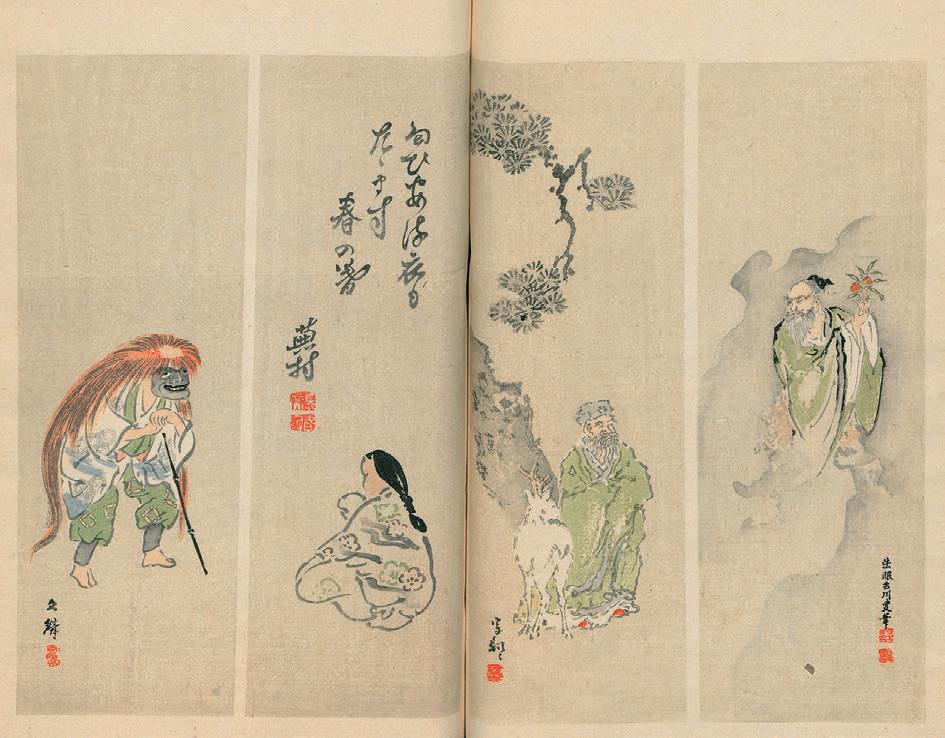 法眼古川叟筆
匂ひある衣も
たゝます
春の暮
蕪村
文麟